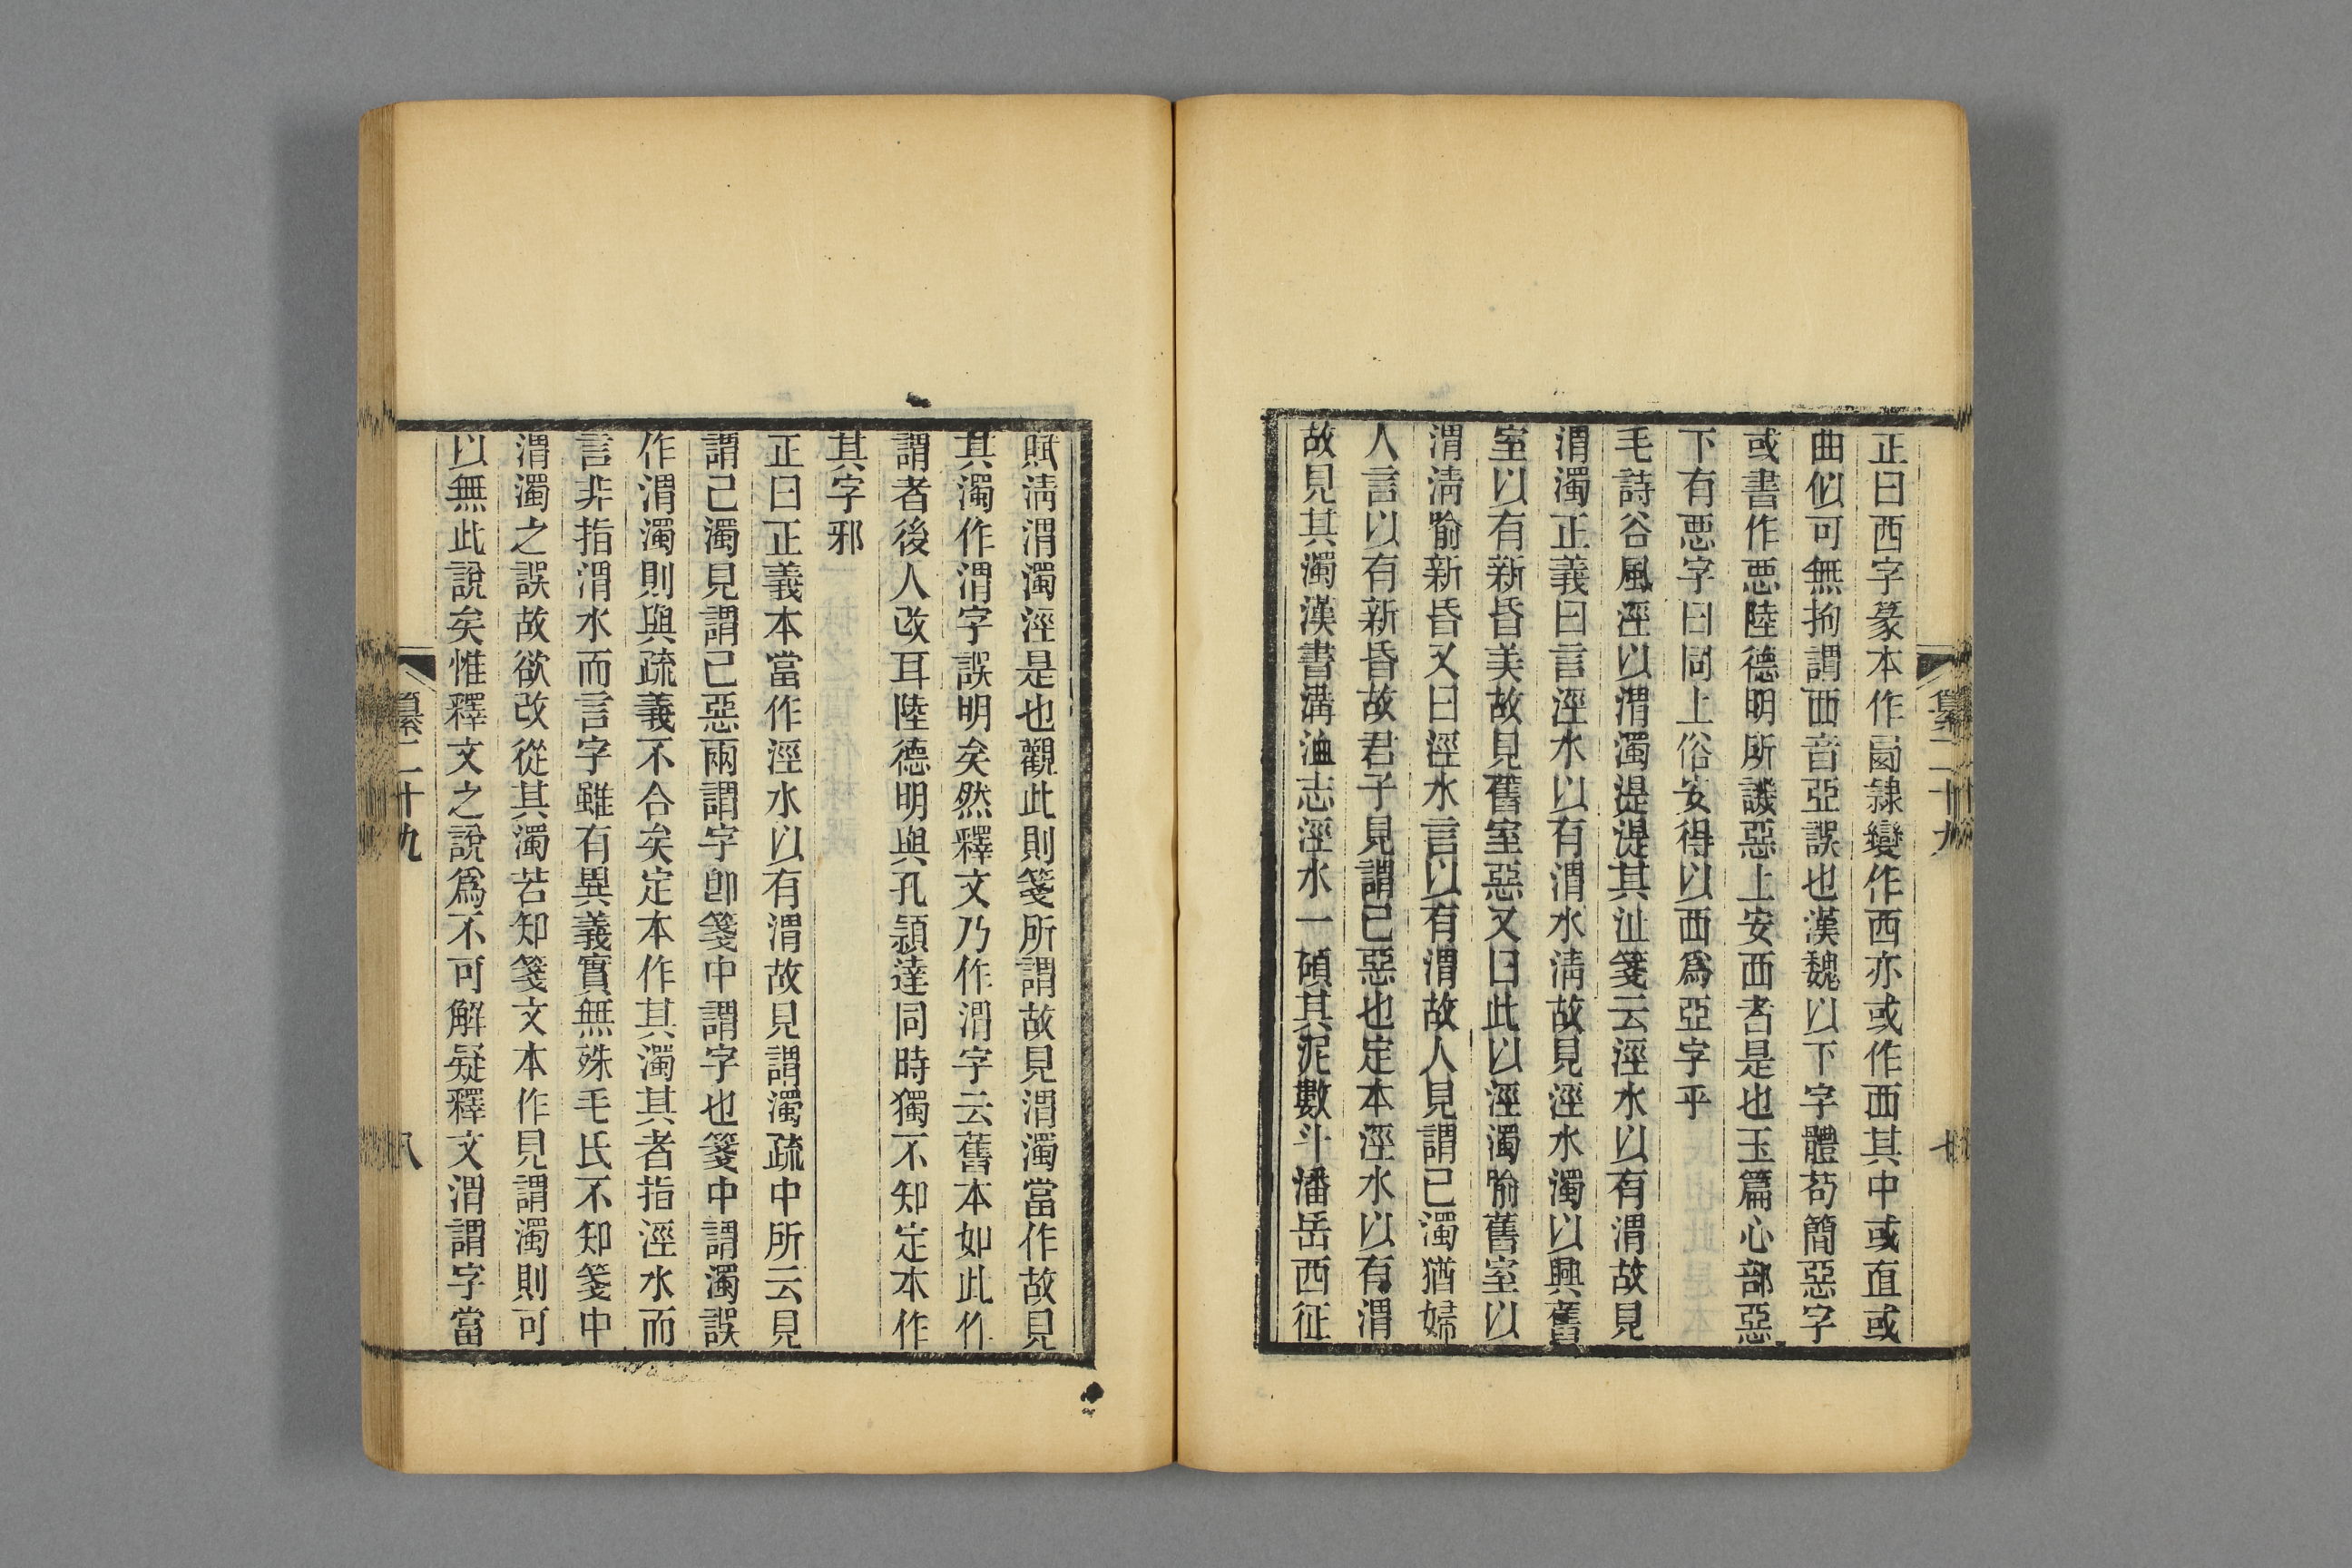 正曰西字篆本作㢴隸變作西亦或作覀其中或直或
曲似可無拘謂覀音亞誤也漢魏以下字體苟簡惡字
或書作悪陸德明所譏惡上安西者是也玉篇心部惡
下有悪字曰同上俗安得以覀爲亞字乎
毛詩谷風涇以渭濁湜湜其沚箋云涇水以有渭故見
渭濁正義曰言涇水以有渭水清故見涇水濁以興舊
室以有新昏美故見舊室惡又曰此以涇濁喻舊室以
渭清喻新昏又曰涇水言以有渭故人見謂己濁猶婦
人言以有新昏故君子見謂己惡也定本涇水以有渭
故見其濁漢書溝洫志涇水一碩其泥數斗潘岳西征
纂二十九
賦清渭濁涇是也觀此則箋所謂故見渭濁當作故見
其濁作渭字誤明矣然釋文乃作渭字云舊本如此作
謂者後人改耳陸德明與孔穎達同時獨不知定本作
其字邪
正曰正義本當作涇水以有渭故見謂濁疏中所云見
謂己濁見謂己惡兩謂字卽箋中謂字也箋中謂濁誤
作渭濁則與疏義不合矣定本作其濁其者指涇水而
言非指渭水而言字雖有異義實無殊毛氏不知箋中
渭濁之誤故欲改從其濁若知箋文本作見謂濁則可
以無此說矣惟釋文之說爲不可解疑釋文渭謂字當
纂二十九